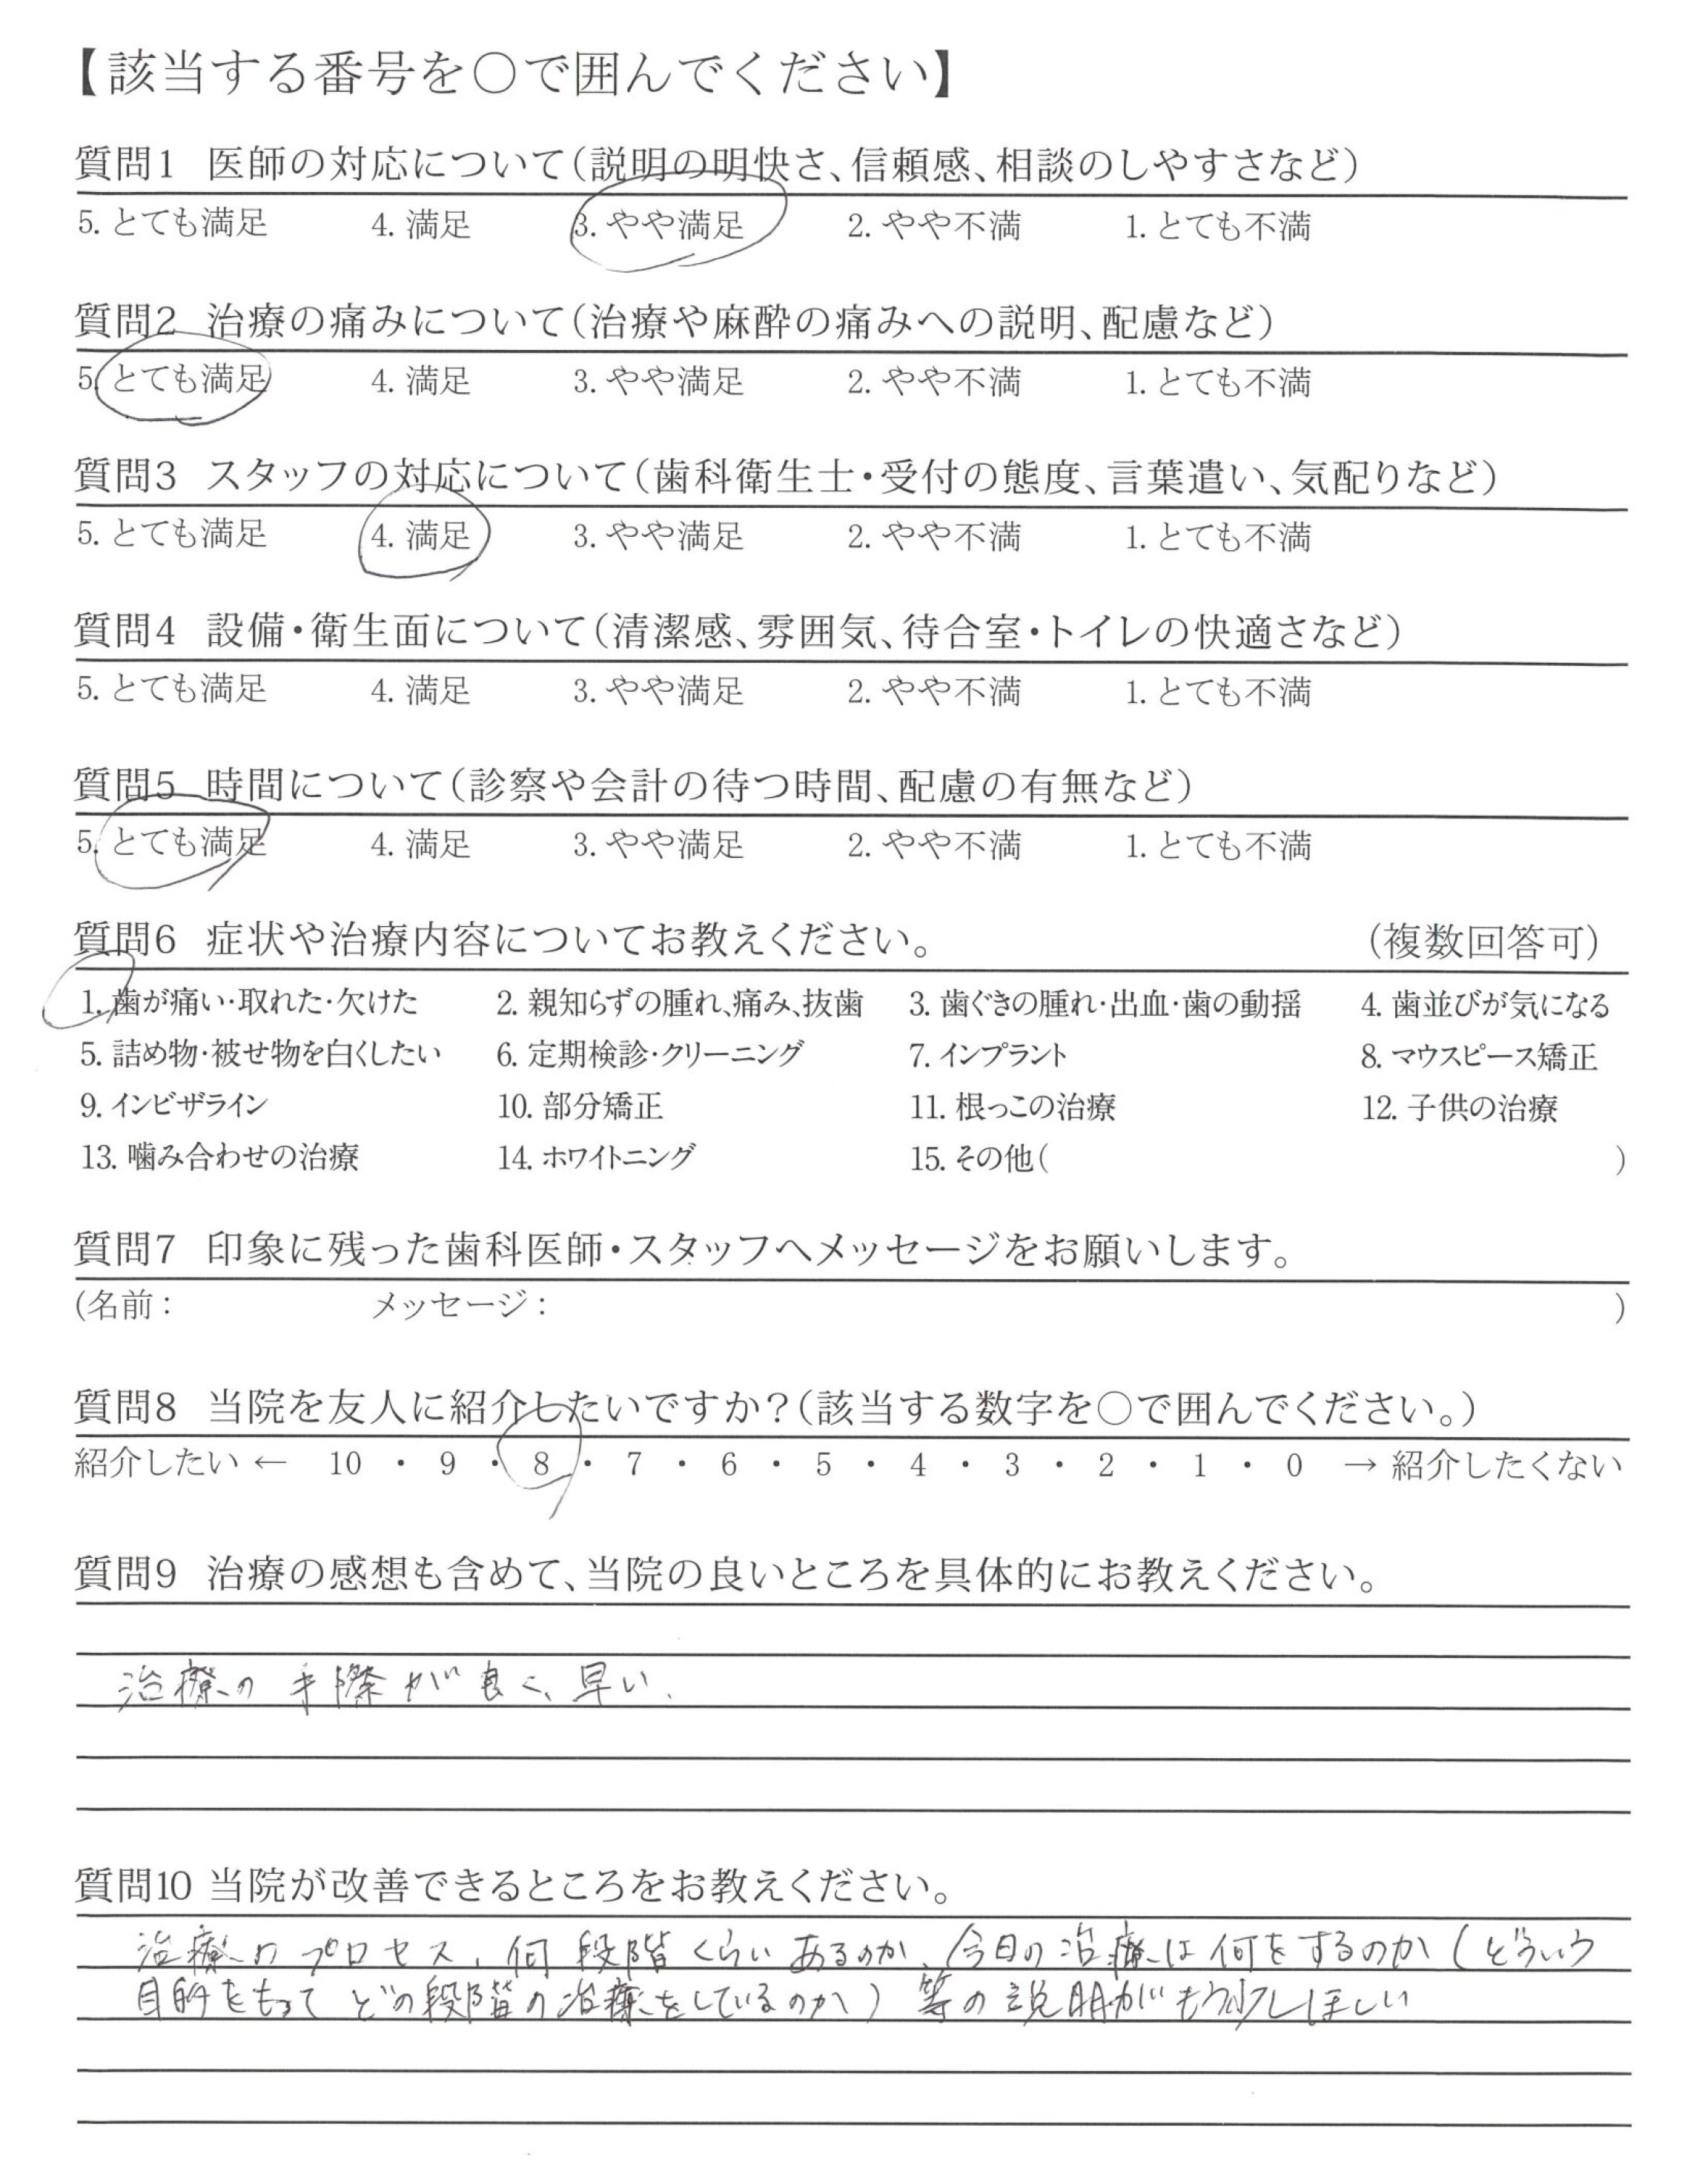 【該当する番号を○で囲んでください】
質問1 医師の対応について(説明の明快さ、信頼感、相談のしやすさなど)
5. とても満足 4. 満足 3. やや満足 2. やや不満 1. とても不満
質問2 治療の痛みについて(治療や麻酔の痛みへの説明、配慮など)
5. とても満足 4. 満足 3. やや満足 2. やや不満 1. とても不満
質問3 スタッフの対応について(歯科衛生士・受付の態度、言葉遣い、気配りなど)
5. とても満足 4. 満足 3. やや満足 2. やや不満 1. とても不満
質問4 設備・衛生面について(清潔感、雰囲気、待合室・トイレの快適さなど)
5. とても満足 4. 満足 3. やや満足 2. やや不満 1. とても不満
質問5 時間について(診察や会計の待つ時間、配慮の有無など)
5. とても満足 4. 満足 3. やや満足 2. やや不満 1. とても不満
質問6 症状や治療内容についてお教えください。 (複数回答可)
1. 歯が痛い・取れた・欠けた 2. 親知らずの腫れ、痛み、抜歯 3. 歯ぐきの腫れ・出血・歯の動揺 4. 歯並びが気になる
5. 詰め物・被せ物を白くしたい 6. 定期検診・クリーニング 7. インプラント 8. マウスピース矯正
9. インビザライン 10. 部分矯正 11. 根っこの治療 12. 子供の治療
13. 噛み合わせの治療 14. ホワイトニング 15. その他( )
質問7 印象に残った歯科医師・スタッフへメッセージをお願いします。
(名前: メッセージ: )
質問8 当院を友人に紹介したいですか?(該当する数字を○で囲んでください。)
紹介したい ← 10 ・ 9 ・ 8 ・ 7 ・ 6 ・ 5 ・ 4 ・ 3 ・ 2 ・ 1 ・ 0 → 紹介したくない
質問9 治療の感想も含めて、当院の良いところを具体的にお教えください。
治療の手際が良く、早い、
質問10 当院が改善できるところをお教えください。
治療のプロセス、何段階くらいあるのか、今日の治療は何をするのか(どういう
目的をもってどの段階の治療をしているのか)等の説明がもう少しほしい